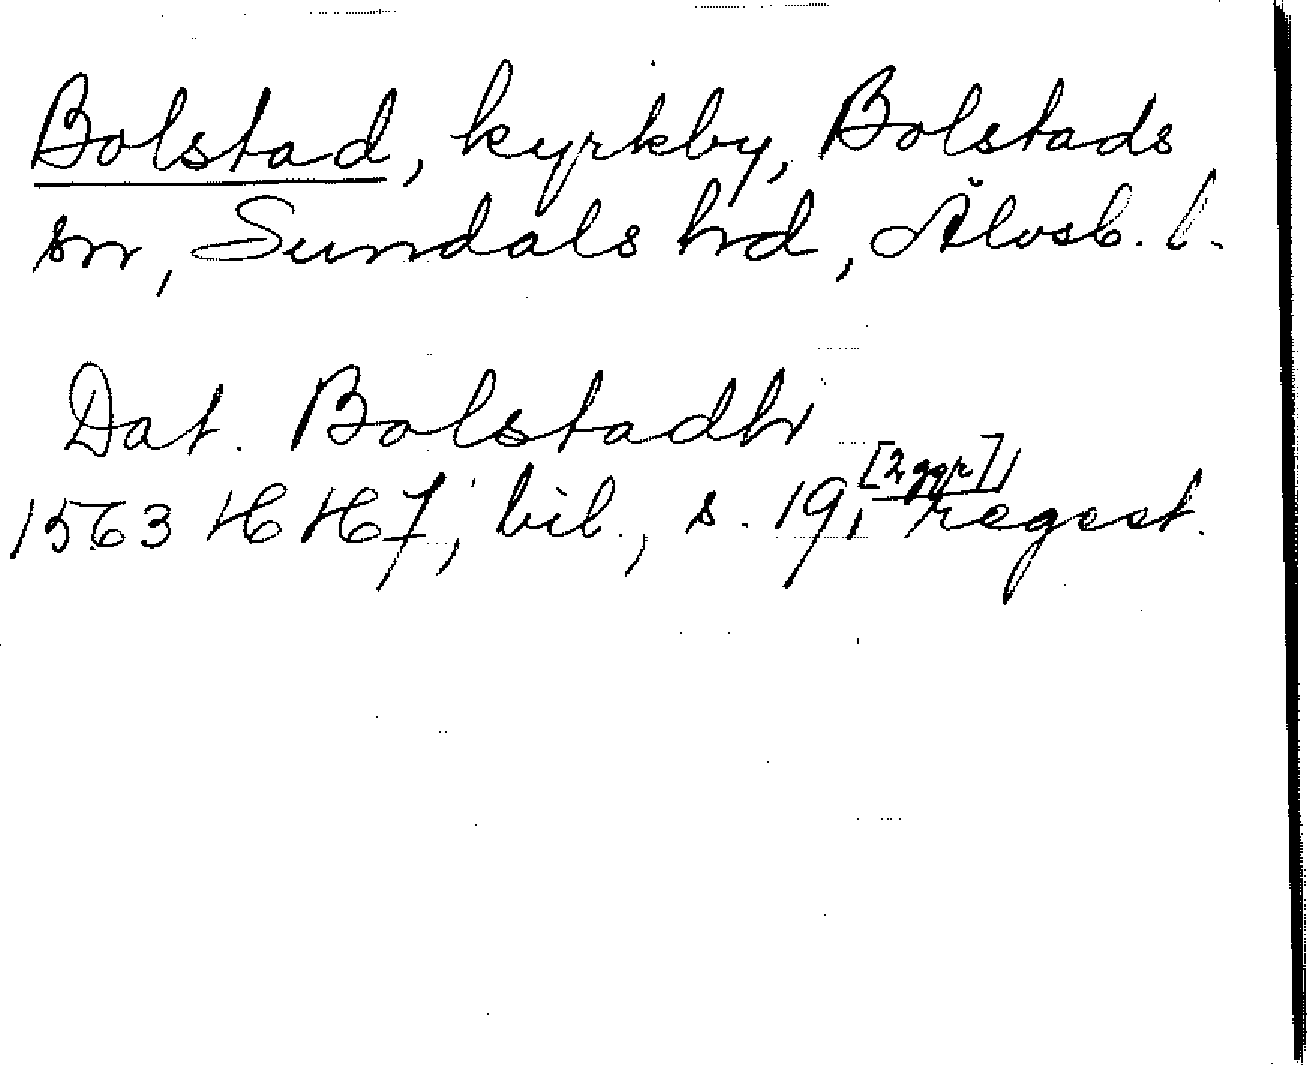 Bolstad, kyrkby, Bolstads
sn, Sundals hd, Älvsb. l.
Dat. Bolstadh
1563 HH7, bil., s. 19, [2 ggr] regest.